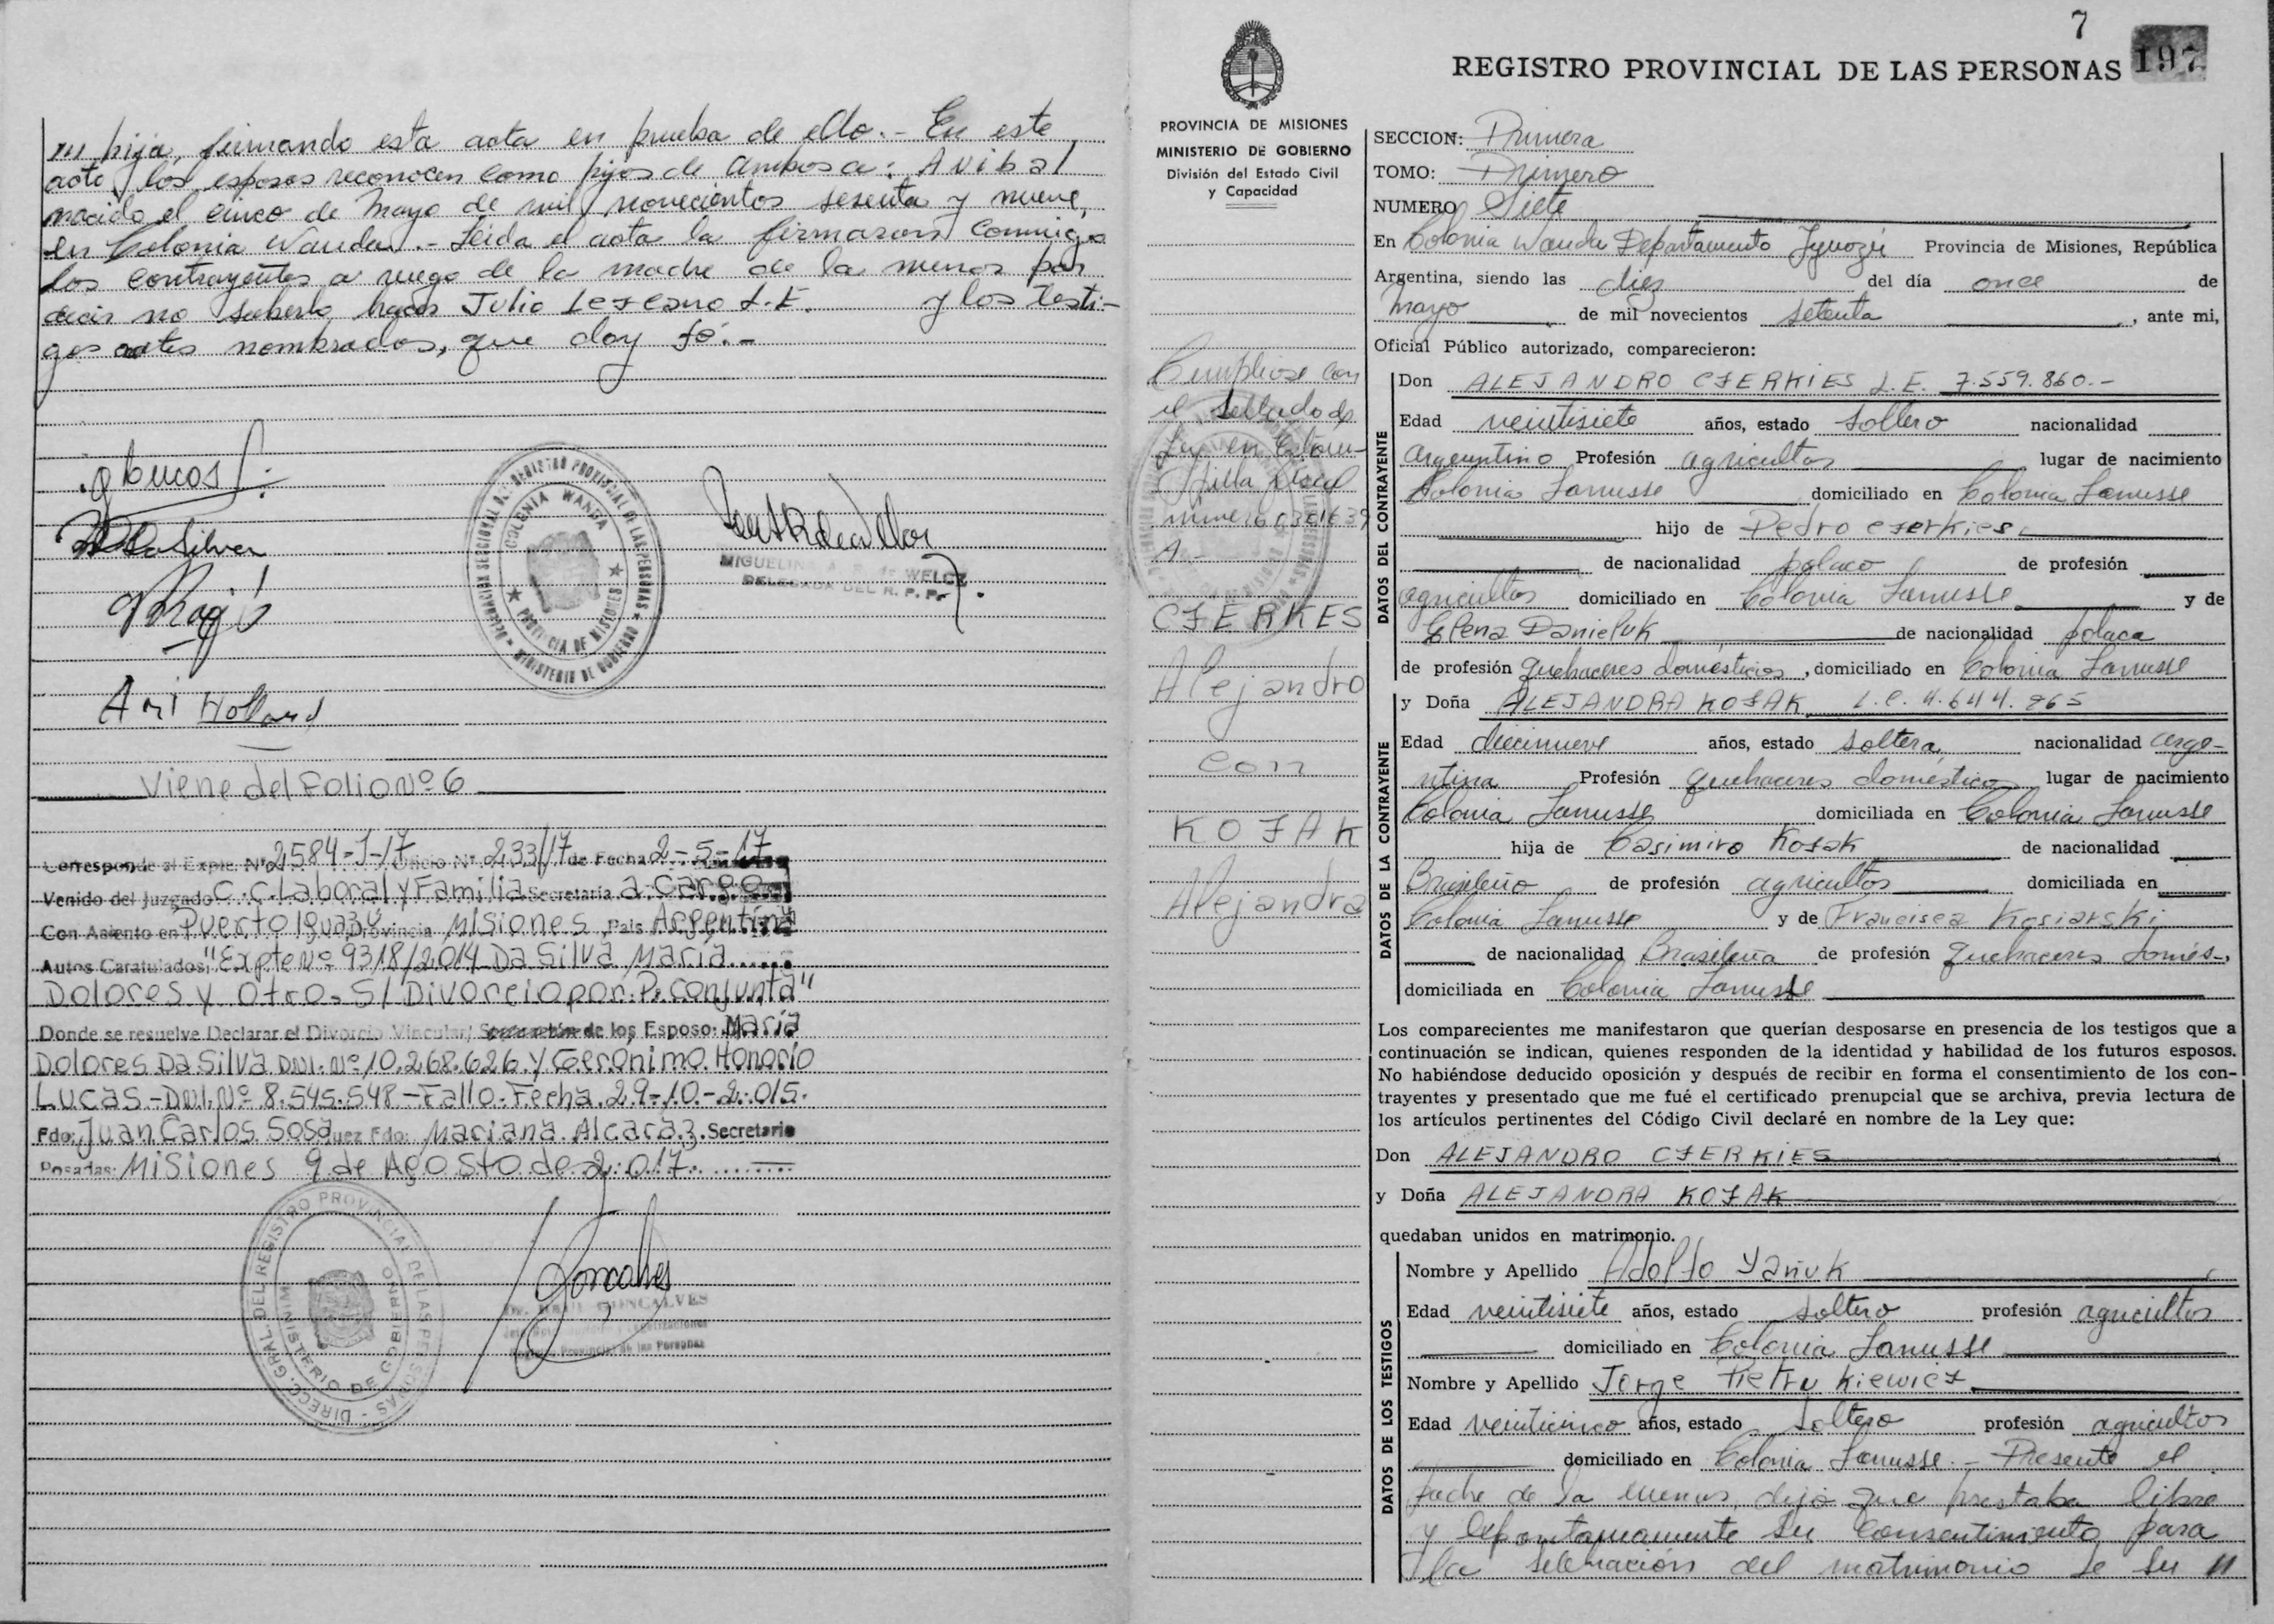 su hija, firmando esta acta en prueba de ello.- En este
acto los esposos reconocen como hijos de ambos a: Anibal
nacido el cinco de Mayo de mil novecientos sesenta y nueve,
en Colonia Wanda.- Leida el acta la firmaron conmigo
los contrayentes a ruego de la madre de la menor por
decir no saberlo hacer Julio Lezcano L.E. y los testi-
gos antes nombrados, que doy fé.-
Ari Holland
SECCIONAL DEL REGISTRO PROVINCIAL DE LAS PERSONAS
COLONIA WANDA
PROVINCIA DE MISIONES
MINISTERIO DE GOBIERNO
MIGUELINA A. R. de WELCZ
DELEGADA DEL R. P. P.
Viene del Folio Nº 6
Corresponde al Expte. Nº 2584-J-17 Oficio Nº 233/17 de Fecha 2-5-17
Venido del Juzgado C.C. Laboral y Familia Secretaria a Cargo
Con Asiento en Puerto Iguazú Provincia Misiones País Argentina
Autos Caratulados "Expte Nº 9318/2014 Da Silva Maria
Dolores y otro S/ Divorcio por P. conjunta"
Donde se resuelve Declarar el Divorcio Vincular de los Esposo: María
Dolores Da Silva DNI. Nº 10.268.626 y Geronimo Honorio
Lucas - DNI. Nº 8.545.548 - Fallo - Fecha 29-10-2.015.
Fdo: Juan Carlos Sosa Juez Fdo: Mariana Alcaráz. Secretario
Posadas: Misiones 9 de Agosto de 2.017
DIRECC. GRAL. DEL REGISTRO PROVINCIAL DE LAS PERSONAS
MINISTERIO DE GOBIERNO
Dr. RAUL GONCALVES
Registro Provincial de las Personas
7
REGISTRO PROVINCIAL DE LAS PERSONAS 197
PROVINCIA DE MISIONES
MINISTERIO DE GOBIERNO
División del Estado Civil
y Capacidad
Cumpliose con
el sellado de
Ley en Estam-
pilla fiscal
número 0301639
A -
CZERKES
Alejandro
con
KOZAK
Alejandra
SECCION: Primera
TOMO: Primero
NUMERO Siete
En Colonia Wanda Departamento Iguazú Provincia de Misiones, República
Argentina, siendo las diez del día once de
Mayo de mil novecientos setenta, ante mi,
Oficial Público autorizado, comparecieron:
DATOS DEL CONTRAYENTE
Don ALEJANDRO CZERKIES L.E. 7.559.860.-
Edad veintisiete años, estado soltero nacionalidad
argentino Profesión agricultor lugar de nacimiento
Colonia Lanusse domiciliado en Colonia Lanusse
hijo de Pedro Czerkies
de nacionalidad polaco de profesión
agricultor domiciliado en Colonia Lanusse y de
Elena Danieluk de nacionalidad polaca
de profesión quehaceres domésticos, domiciliado en Colonia Lanusse
DATOS DE LA CONTRAYENTE
y Doña ALEJANDRA KOZAK L.C. 4.644.865
Edad diecinueve años, estado soltera nacionalidad arge-
ntina Profesión quehaceres domésticos lugar de nacimiento
Colonia Lanusse domiciliada en Colonia Lanusse
hija de Casimiro Kozak de nacionalidad
Brasileño de profesión agricultor domiciliada en
Colonia Lanusse y de Francisca Kosiarski
de nacionalidad Brasileña de profesión quehaceres domés-,
domiciliada en Colonia Lanusse
Los comparecientes me manifestaron que querían desposarse en presencia de los testigos que a
continuación se indican, quienes responden de la identidad y habilidad de los futuros esposos.
No habiéndose deducido oposición y después de recibir en forma el consentimiento de los con-
trayentes y presentado que me fué el certificado prenupcial que se archiva, previa lectura de
los artículos pertinentes del Código Civil declaré en nombre de la Ley que:
Don ALEJANDRO CZERKIES
y Doña ALEJANDRA KOZAK
quedaban unidos en matrimonio.
DATOS DE LOS TESTIGOS
Nombre y Apellido Adolfo Yañuk
Edad veintisiete años, estado soltero profesión agricultor
domiciliado en Colonia Lanusse
Nombre y Apellido Jorge Pietrukiewicz
Edad veinticinco años, estado soltero profesión agricultor
domiciliado en Colonia Lanusse.- Presente el
padre de la menor, dijo que prestaba libre
y espontaneamente su consentimiento para
la selebración del matrimonio de su "